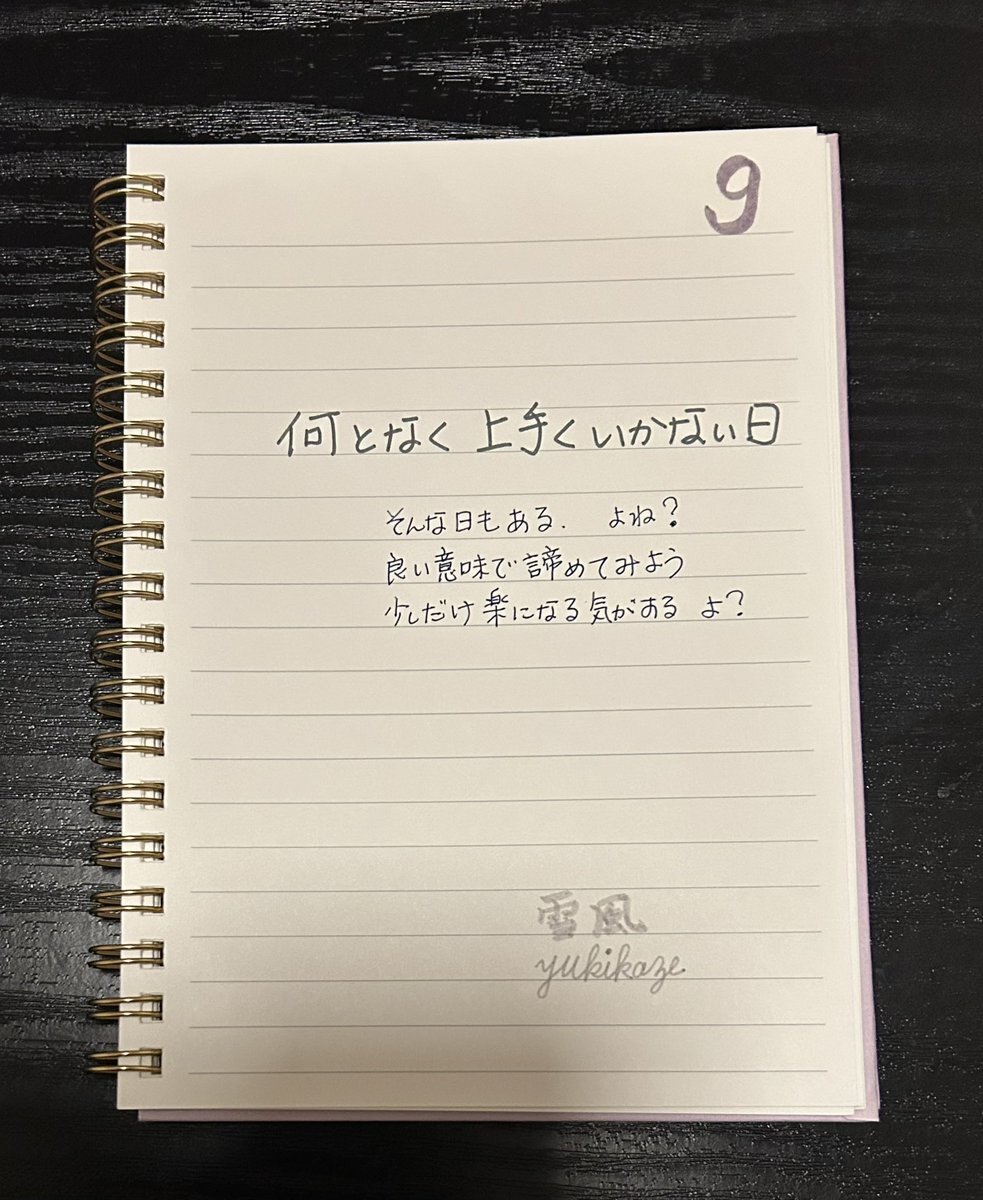 9
何となく 上手くいかない日
そんな日もある. よね?
良い意味で諦めてみよう
少しだけ楽になる気がある よ?
雪風
yukikaze